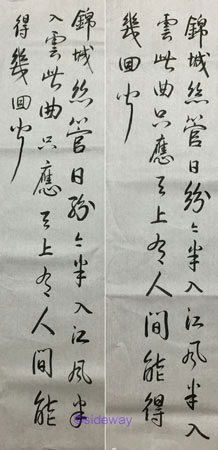 錦城絲管日紛々半入江風半入
雲此曲只應天上有人間能得
幾回聞
錦城絲管日紛々半入江風半
入雲此曲只應天上有人間能
得幾回聞
@sideway